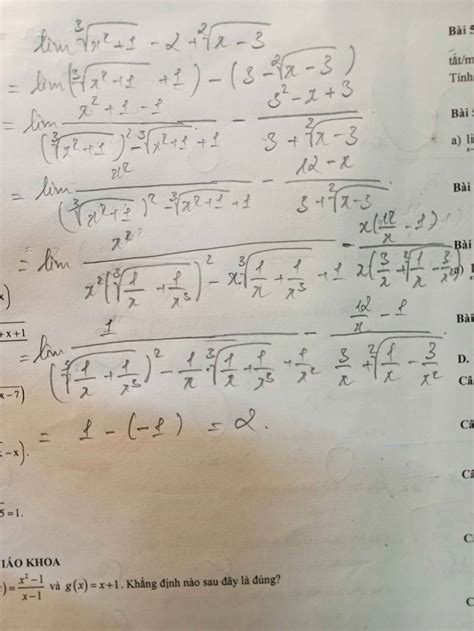 lim ∛(x²+1) - 2 + ²√(x-3)
= lim (∛(x²+1) + 1) - (3 - ²√(x-3))
= lim (x²+1-1)/((∛(x²+1))² - ∛(x²+1) + 1) - (3²-x+3)/(3 + ²√(x-3))
= lim x²/((∛(x²+1))² - ∛(x²+1) + 1) - (12-x)/(3 + ²√(x-3))
= lim x²/(x²(∛(1/x + 1/x³))² - x∛(1/x + 1/x³) + 1) - x(12/x - 1)/(x(3/x + ²√(1/x - 3/x²)))
= lim 1/((∛(1/x + 1/x³))² - 1/x · ∛(1/x + 1/x³) + 1/x²) - (12/x - 1)/(3/x + ²√(1/x - 3/x²))
= 1 - (-1) = 2.
Bài 5
tắt/m
Tính
Bài
a) li
Bài
Bài
Bài
D.
Câ
Câ
Câ
C
C
x)
+x+1
x-7)
-x).
5=1.
IÁO KHOA
)=(x²-1)/(x-1) và g(x)=x+1. Khẳng định nào sau đây là đúng?